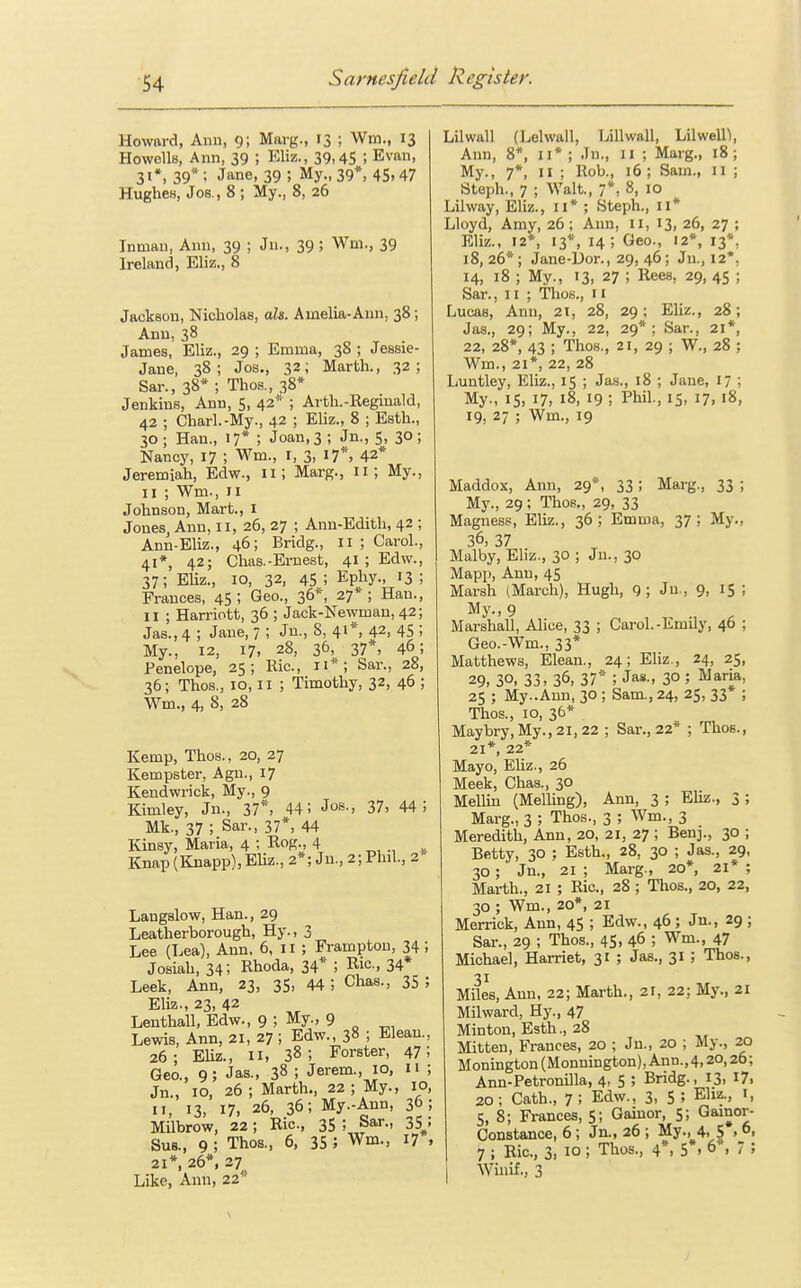 54
Sarnesfield Register.
Howard, Ann, 9; Marg., 13 ; Wm., 13
Howells, Ann, 39 ; Eliz., 39, 45 ; Evan,
31*, 39* ; Jane, 39 ; My., 39*, 45, 47
Hughes, Jos., 8 ; My., 8, 26
Inman, Ann, 39 ; Jn., 39 ; Wm., 39
Ireland, Eliz., 8
Jackson, Nicholas, als. Amelia-Ann, 38 ;
Ann, 38
James, Eliz., 29 ; Emma, 38 ; Jessie-
Jane, 38 ; Jos., 32 ; Marth., 32 ;
Sar., 38* ; Thos., 38*
Jenkins, Ann, 5, 42* ; Arth.-Reginald,
42 ; Charl.-My., 42 ; Eliz., 8 ; Esth.,
30 ; Han., 17* ; Joan, 3 ; Jn., 5, 30 ;
Nancy, 17 ; Wm., 1, 3, 17*, 42*
Jeremiah, Edw., 11 ; Marg., 11 ; My.,
11 ; Wm., 11
Johnson, Mart., 1
Jones, Ann, 11, 26, 27 ; Ann-Edith, 42 ;
Ann-Eliz., 46; Bridg., 11 ; Carol.,
41*, 42; Chas.-Ernest, 41 ; Edw.,
37; Eliz., 10, 32, 45 ; Ephy., 13 ;
Frances, 45 ; Geo., 36*, 27* ; Han.,
11 ; Harriott, 36 ; Jack-Newman, 42;
Jas., 4 ; Jane, 7 ; Jn., 8, 41*, 42, 45 ;
My., 12, 17, 28, 36, 37*, 46 ;
Penelope, 25 ; Ric., 11* ; Sar., 28,
36 ; Thos., 10, 11 ; Timothy, 32, 46 ;
Wm., 4, 8, 28
Kemp, Thos., 20, 27
Kempster, Agn., 17
Kendwrick, My., 9
Kimley, Jn., 37*, 44 ; Jos., 37, 44 ;
Mk., 37 ; Sar., 37*, 44
Kinsy, Maria, 4 ; Rog., 4
Knap (Knapp), Eliz., 2* ; Jn., 2 ; Phil., 2*
Langslow, Han., 29
Leatherborough, Hy., 3
Lee (Lea), Ann, 6, 11 ; Frampton, 34 ;
Josiah, 34 ; Rhoda, 34* ; Ric., 34*
Leek, Ann, 23, 35, 44 ; Chas., 35 ;
Eliz., 23, 42
Lenthall, Edw., 9 ; My., 9
Lewis, Ann, 21, 27 ; Edw., 38 ; Elean.,
26 ; Eliz., 11, 38 ; Forster, 47 ;
Geo., 9 ; Jas., 38 ; Jerem., 10, 11 ;
Jn., 10, 26 ; Marth., 22 ; My., 10,
11, 13, 17, 26, 36 ; My.-Ann, 36 ;
Milbrow, 22 ; Ric., 35 ; Sar., 35 ;
Sus., 9 ; Thos., 6, 35 ; Wm., 17*,
21*, 26*, 27
Like, Ann, 22*
Lilwall (Lelwall, Lillwall, Lilwell),
Ann, 8*, 11* ; Jn., 11 ; Marg., 18 ;
My., 7*, 11 ; Rob., 16 ; Sam., 11 ;
Steph., 7 ; Walt., 7*, 8, 10
Lilway, Eliz., 11* ; Steph., 11*
Lloyd, Amy, 26 ; Ann, 11, 13, 26, 27 ;
Eliz., 12*, 13*, 14 ; Geo., 12*, 13*,
18, 26* ; Jane-Dor., 29, 46 ; Jn., 12*,
14, 18 ; My., 13, 27 ; Rees, 29, 45 ;
Sar., 11 ; Thos., 11
Lucas, Ann, 21, 28, 29 ; Eliz., 28 ;
Jas., 29; My., 22, 29* ; Sar., 21*,
22, 28*, 43 ; Thos., 21, 29 ; W., 28 ;
Wm., 21*, 22, 28
Luntley, Eliz., 15 ; Jas., 18 ; Jane, 17 ;
My., 15, 17, 18, 19 ; Phil., 15, 17, 18,
19, 27 ; Wm., 19
Maddox, Ann, 29*, 33 ; Marg., 33 ;
My., 29 ; Thos., 29, 33
Magness, Eliz., 36 ; Emma, 37 ; My.,
36, 37
Malby, Eliz., 30 ; Jn., 30
Mapp, Ann, 45
Marsh (March), Hugh, 9 ; Jn., 9, 15 ;
My., 9
Marshall, Alice, 33 ; Carol.-Emily, 46 ;
Geo.-Wm., 33*
Matthews, Elean., 24 ; Eliz., 24, 25,
29, 30, 33, 36, 37* ; Jas., 30 ; Maria,
25 ; My..Ann, 30 ; Sam., 24, 25, 33* ;
Thos., 10, 36*
Maybry, My., 21, 22 ; Sar., 22* ; Thos.,
21*, 22*
Mayo, Eliz., 26
Meek, Chas., 30
Mellin (Melling), Ann, 3 ; Eliz., 3 ;
Marg., 3 ; Thos., 3 ; Wm., 3
Meredith, Ann, 20, 21, 27 ; Benj., 30 ;
Betty, 30 ; Esth., 28, 30 ; Jas., 29,
30 ; Jn., 21 ; Marg., 20*, 21* ;
Marth., 21 ; Ric., 28 ; Thos., 20, 22,
30 ; Wm., 20*, 21
Merrick, Ann, 45 ; Edw., 46 ; Jn., 29 ;
Sar., 29 ; Thos., 45, 46 ; Wm., 47
Michael, Harriet, 31 ; Jas., 31 ; Thos.,
31
Miles, Ann, 22; Marth., 21, 22; My., 21
Milward, Hy., 47
Minton, Esth., 28
Mitten, Frances, 20 ; Jn., 20 ; My., 20
Monington (Monnington), Ann., 4, 20, 26;
Ann-Petronilla, 4, 5 ; Bridg., 13, 17,
20 ; Cath., 7 ; Edw., 3, 5 ; Eliz., 1,
5, 8; Frances, 5; Gainor, 5; Gainor-
Constance, 6 ; Jn., 26 ; My., 4, 5*, 6,
7 ; Ric., 3, 10 ; Thos., 4*, 5*, 6*, 7 ;
Winif., 3